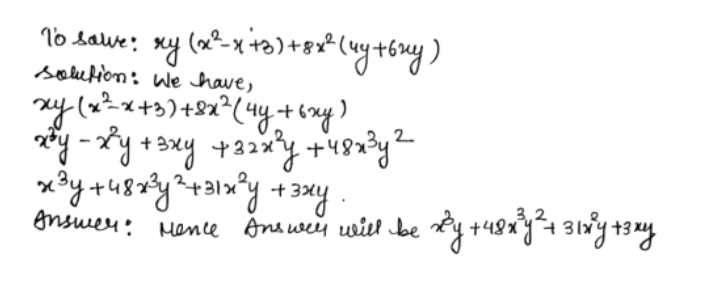 To solve: xy (x²-x+3)+8x² (4y+6xy)
Solution: We have,
xy (x²-x+3)+8x² (4y+6xy)
x³y - x²y + 3xy + 32x²y + 48x³y²
x³y + 48x³y² + 31x²y + 3xy.
Answer: Hence Answer will be x³y + 48x³y² + 31x²y + 3xy